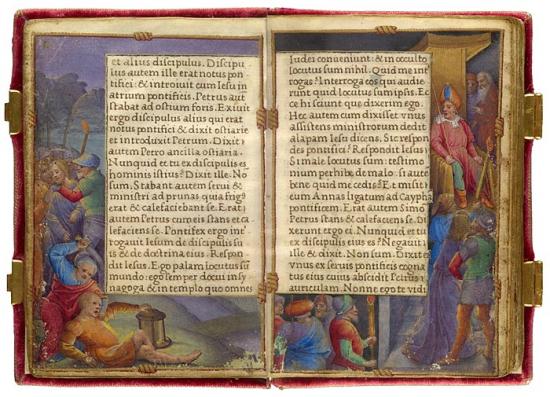 et alius discipulus. Discipu
lus autem ille erat notus pon
tifici: & introiuit cum Iesu in
atrium pontificis. Petrus aut
stabat ad ostium foris. Exiuit
ergo discipulus alius qui erat
notus pontifici & dixit ostiarie
et introduxit Petrum. Dixit
autem Petro ancilla ostiaria.
Nunquid et tu ex discipulis es
hominis istius? Dixit ille. No
sum. Stabant autem serui &
ministri ad prunas quia frig9
erat & calefaciebant se. Erat
autem Petrus cum eis stans et ca
lefaciens se. Pontifex ergo int
rogauit Iesum de discipulis su
is & de doctrina eius. Respon
dit Iesus. Ego palam locutus su
mundo: ego semper docui in sy
nagoga & in templo quo omnes
Iudei conueniunt: & in occulto
locutus sum nihil. Quid me int
rogas? Interroga eos qui audie
runt quid locutus sum ipsis. Ec
ce hi sciunt que dixerim ego.
Hec autem cum dixisset vnus
assistens ministrorum dedit
alapam Iesu dicens. Sic respon
des pontifici? Respondit Iesus:
Si male locutus sum: testimo
nium perhibe de malo: si aute
bene quid me cedis? Et misit
eum Annas ligatum ad Caypha
pontificem. Erat autem Simo
Petrus stans & calefaciens se. Di
xerunt ergo ei. Nunquid et tu
ex discipulis eius es? Negauit
ille & dixit. Non sum. Dixit
vnus ex seruis pontificis cogna
tus eius cuius abscidit Petrus
auriculam. Nonne ego te vidi